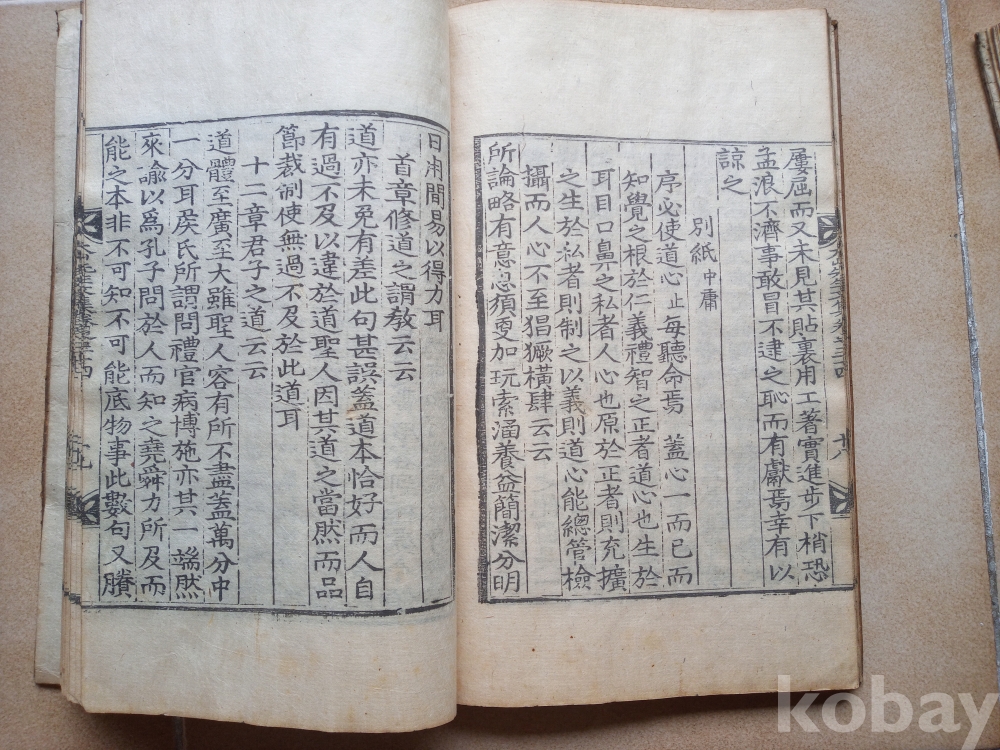 屢屈而又未見其貼裏用工著實進步下梢恐
孟浪不濟事敢冒不逮之恥而有獻焉幸有以
諒之
別紙中庸
序必使道心止每聽命焉 蓋心一而已而
知覺之根於仁義禮智之正者道心也生於
耳目口鼻之私者人心也原於正者則充擴
之生於私者則制之以義則道心能總管檢
攝而人心不至猖獗橫肆云云
所論略有意思須更加玩索涵養益簡潔分明
日用間易以得力耳
首章修道之謂敎云云
道亦未免有差此句甚誤蓋道本恰好而人自
有過不及以違於道聖人因其道之當然而品
節裁制使無過不及於此道耳
十二章君子之道云云
道體至廣至大雖聖人容有所不盡蓋萬分中
一分耳侯氏所謂問禮官病博施亦其一端然
來諭以爲孔子問於人而知之堯舜力所及而
能之本非不可知不可能底物事此數句又賸
kobay